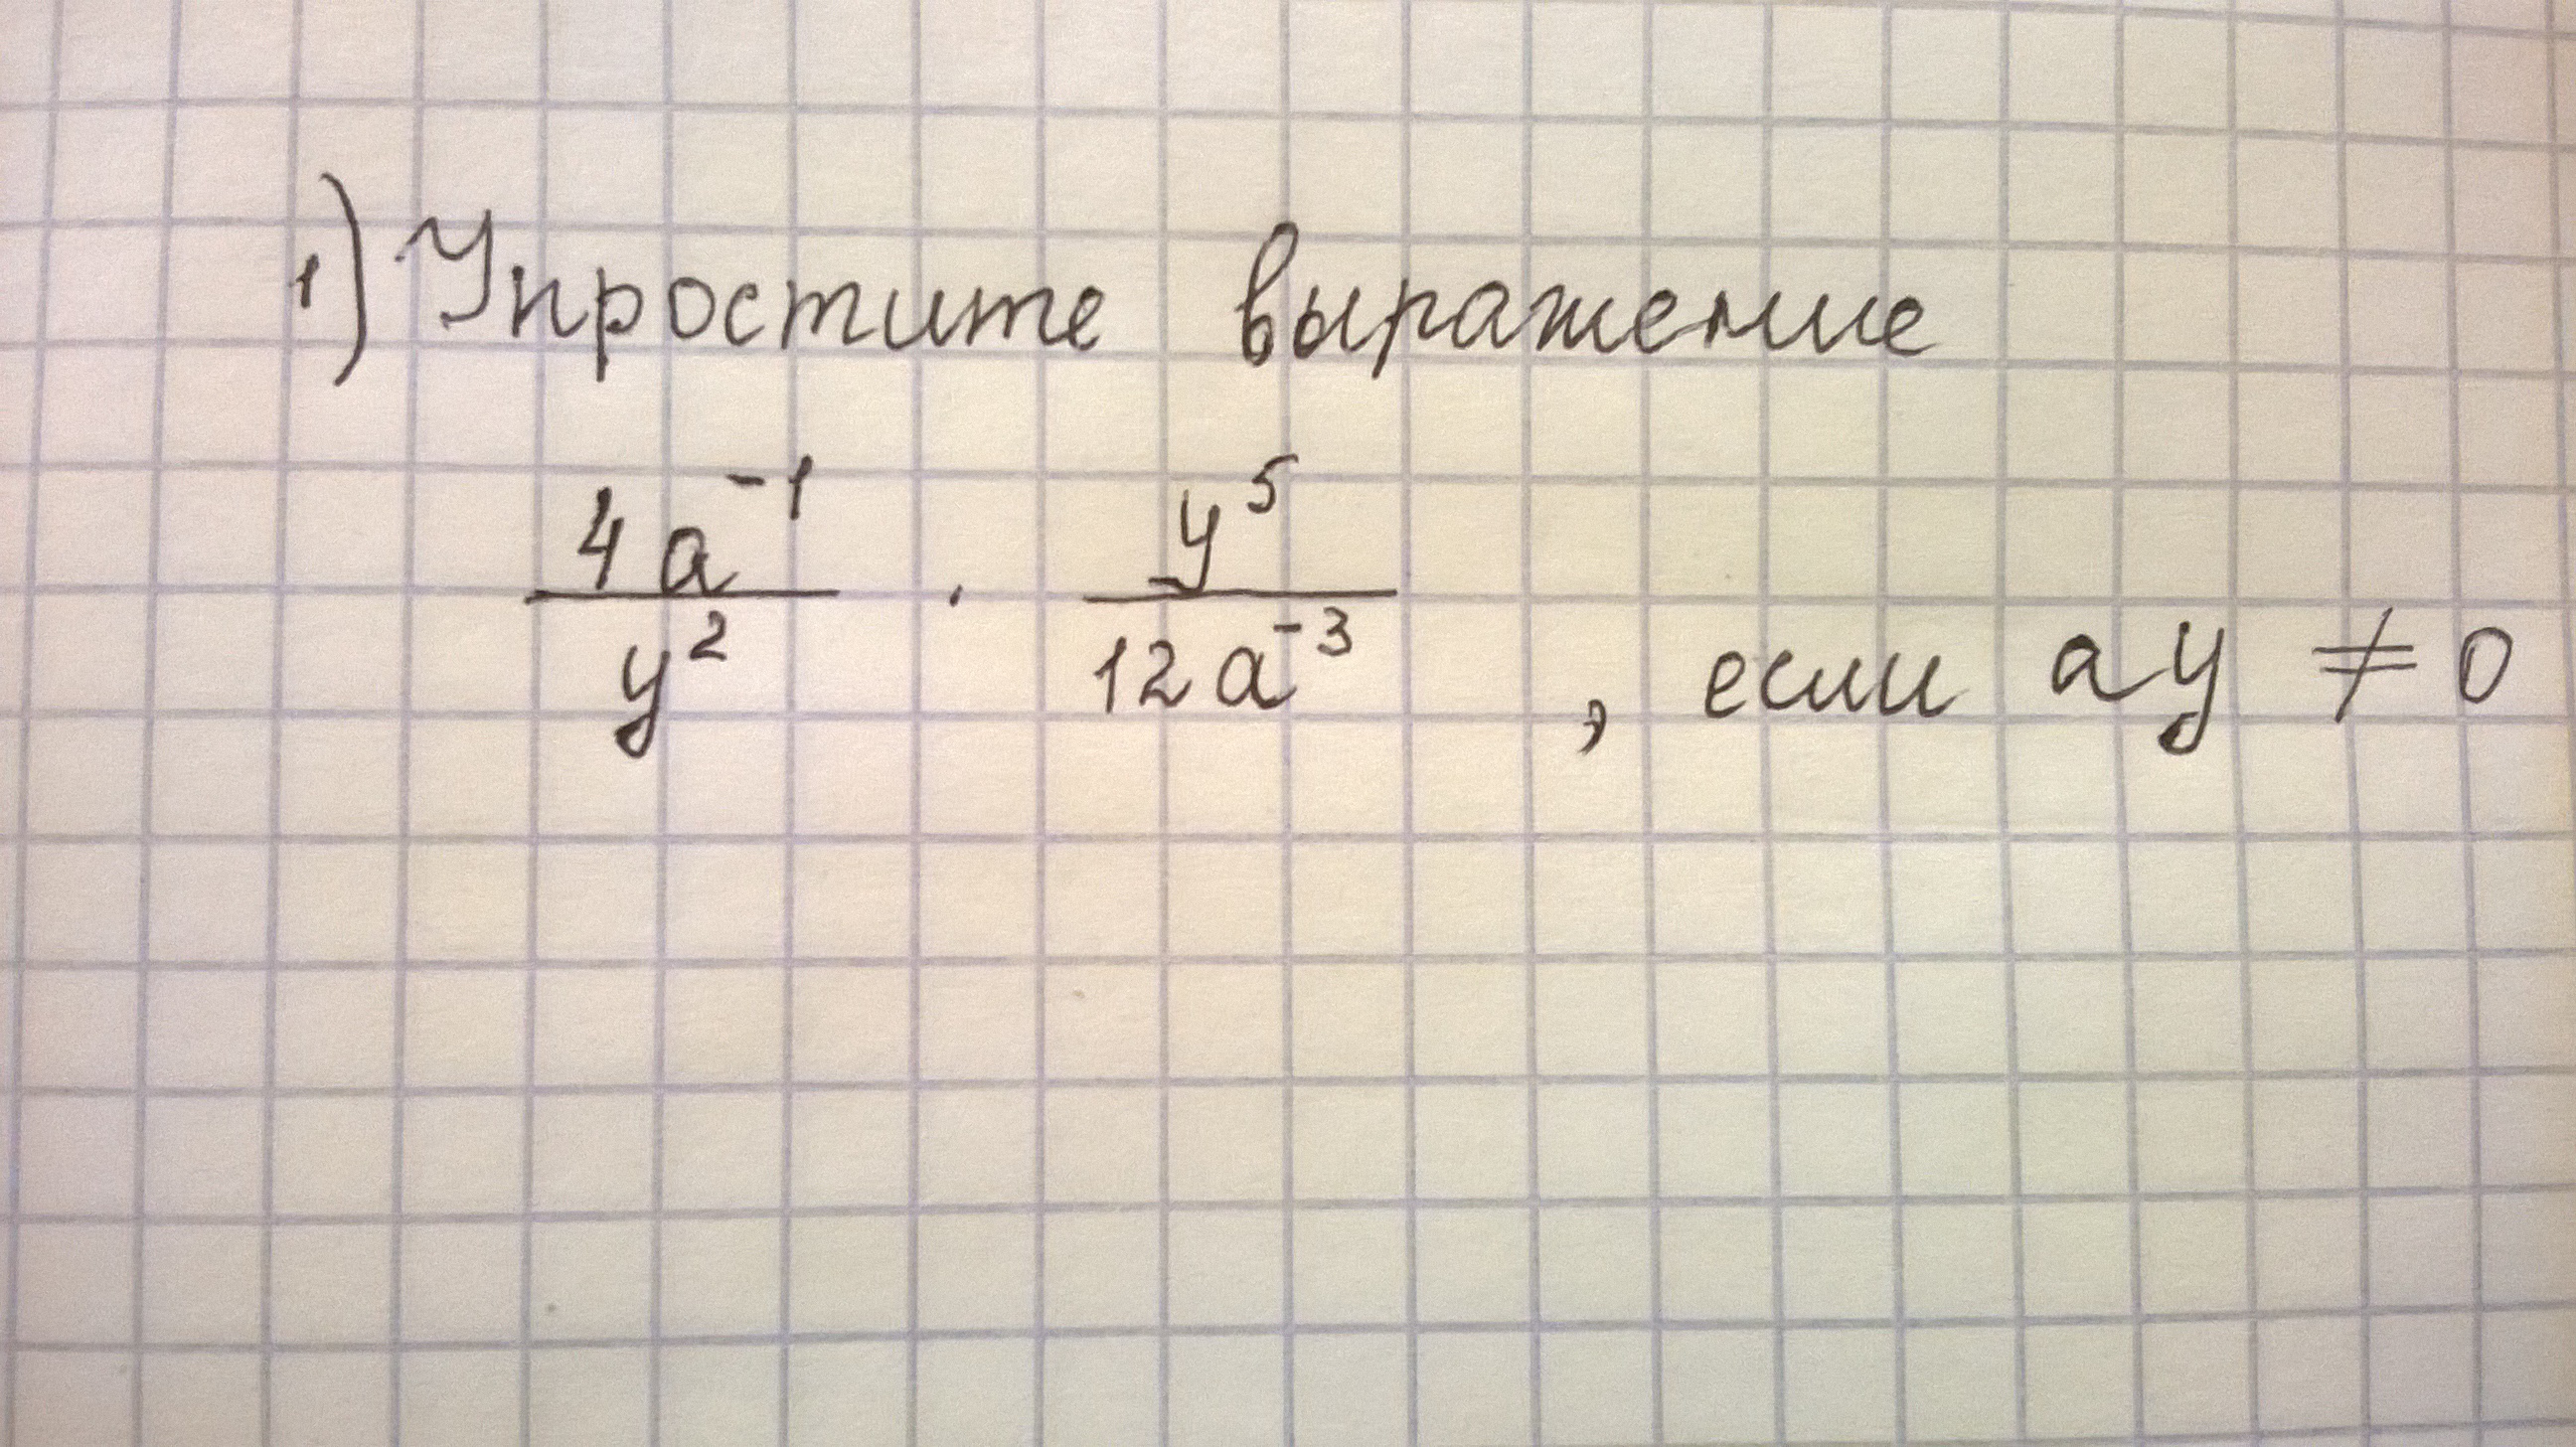 1) Упростите выражение
4a⁻¹/y² · y⁵/12a⁻³, если ay ≠ 0